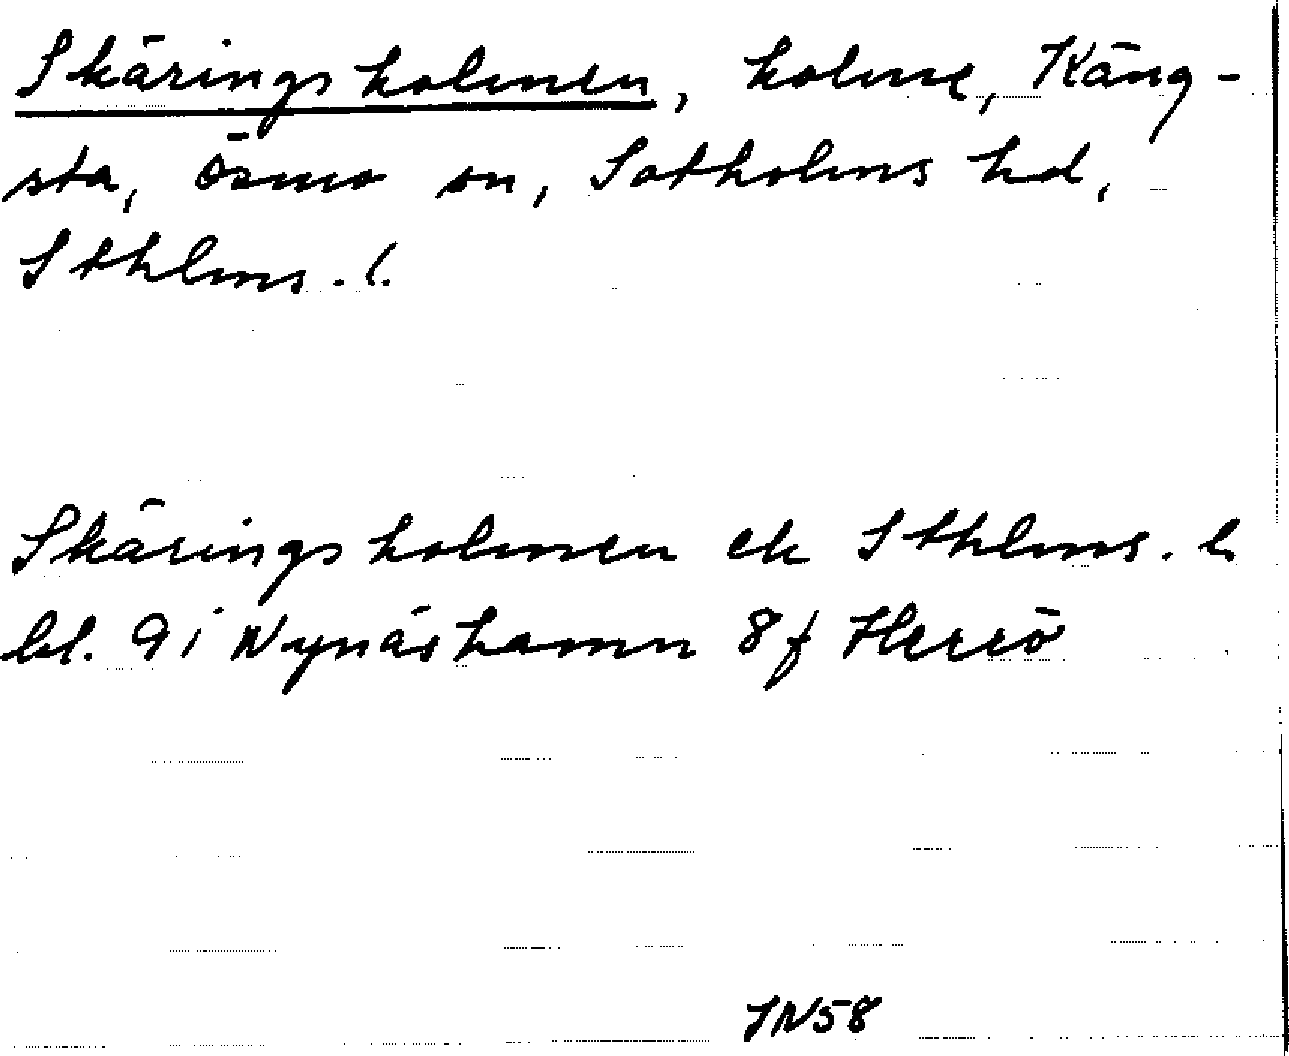 Skäringsholmen, holme, Käng-
sta, Ösmo sn, Sotholms hd,
Sthlms. l.
Skäringsholmen ek Sthlms. l
bl. 91 Nynäshamn 8f Herrö
JN58